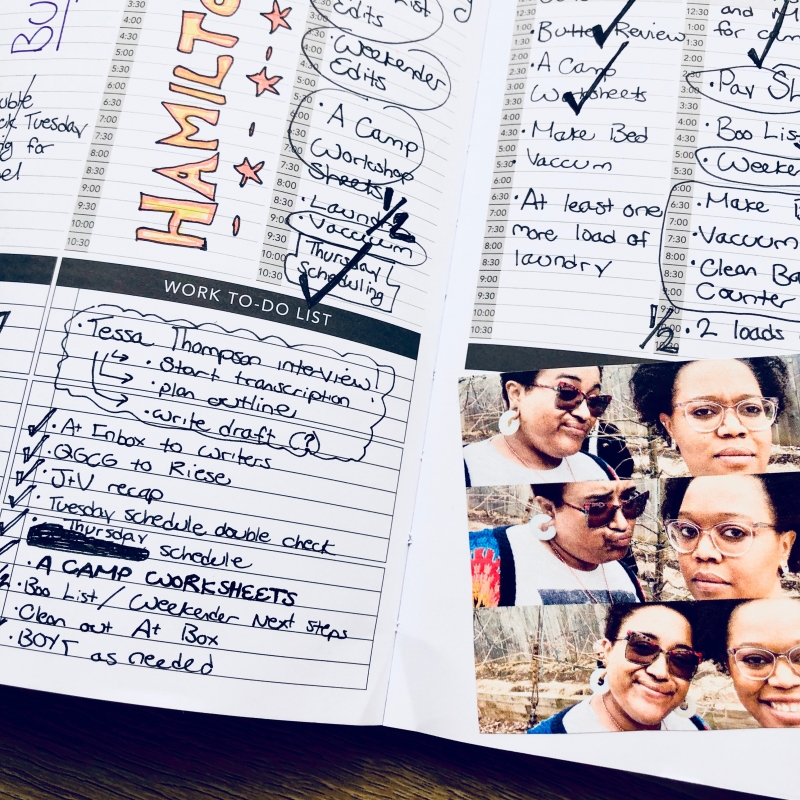 Bu
uble
ck Tuesday
g for
el
3:30
5:30
6:00
7:00
7:30
8:00
8:30
9:00
9:30
10:00
10:30
HAMILTO
List
Edits
Weekender
Edits
A Camp
Workshop
Sheets
1/2
Laundry
Vaccuum
Thursday
Scheduling
3:30
4:00
4:30
5:00
5:30
6:00
8:00
8:30
9:00
9:30
10:00
10:30
WORK TO-DO LIST
· Tessa Thompson interview!
· Start transcription
· plan outline
· write draft (?)
· At Inbox to writers
· QGCG to Riese
· J+V recap
· Tuesday schedule double check
· Thursday schedule
· A CAMP WORKSHEETS
· Boo List / Weekender Next Steps
· Clean out At Box
· BOYT as needed
12:30
1:00
1:30
2:00
2:30
3:00
3:30
4:00
4:30
5:00
5:30
6:00
6:30
7:00
7:30
8:00
8:30
9:00
9:30
10:00
10:30
· Butter Review
· A Camp
Worksheets
· Make Bed
· Vaccum
· At least one
more load of
laundry
1/2
12:30
1:00
1:30
2:00
3:00
3:30
4:00
4:30
5:00
5:30
6:00
6:30
7:00
7:30
8:00
8:30
and
for
· Boo Lis
· Weeke
· Make B
· Vaccuum
· Clean Ba
Counter
· 2 loads